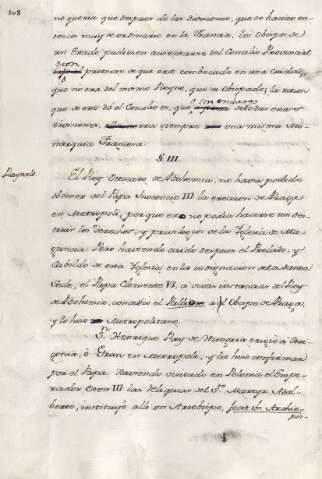 no queria que despues de las divisiones, que se hacian en-
tonces muy de ordinario en la Francia, los Obispos de
un Estado pudiesen ausentarse del Concilio Provincial
con
pretexto de que era combocado en una Ciudad,
que no era del mismo Reyno, que su Obispado; la razon
que se en el Concilio es, que sin embargo de todas esas
divisiones, era siempre una misma Mo-
narquia Francesa.
§ III.
Raynald.
El Rey Ottocaro de Bohemia, no havia podido
obtener del Papa Inocencio III la ereccion de Praga
en Metropoli, por que no podia hacerse sin des-
truir los Derechos, y privilegios de la Iglesia de Ma-
guncia. Pero haviendo caido despues el Prelado, y
Cabildo de esta Iglesia en la indignacion de la Santa
Sede, el Papa Clemente VI, á vivas instancias del Rey
de Bohemia, concedió el Pallio al Obispo de Praga,
y lo hizo Metropolitano.
Sn. Henrique Rey de Hungria erigio a Stri-
gonia, ó Gran en Metropoli, y la hizo confirmar
por el Papa. Haviendo visitado en Polonia el Empe-
rador Oton III las Reliquias del Sto. Martyr Adal-
berto, instituyó allá un Arzobispo, fecit ibi Archie-
pis-